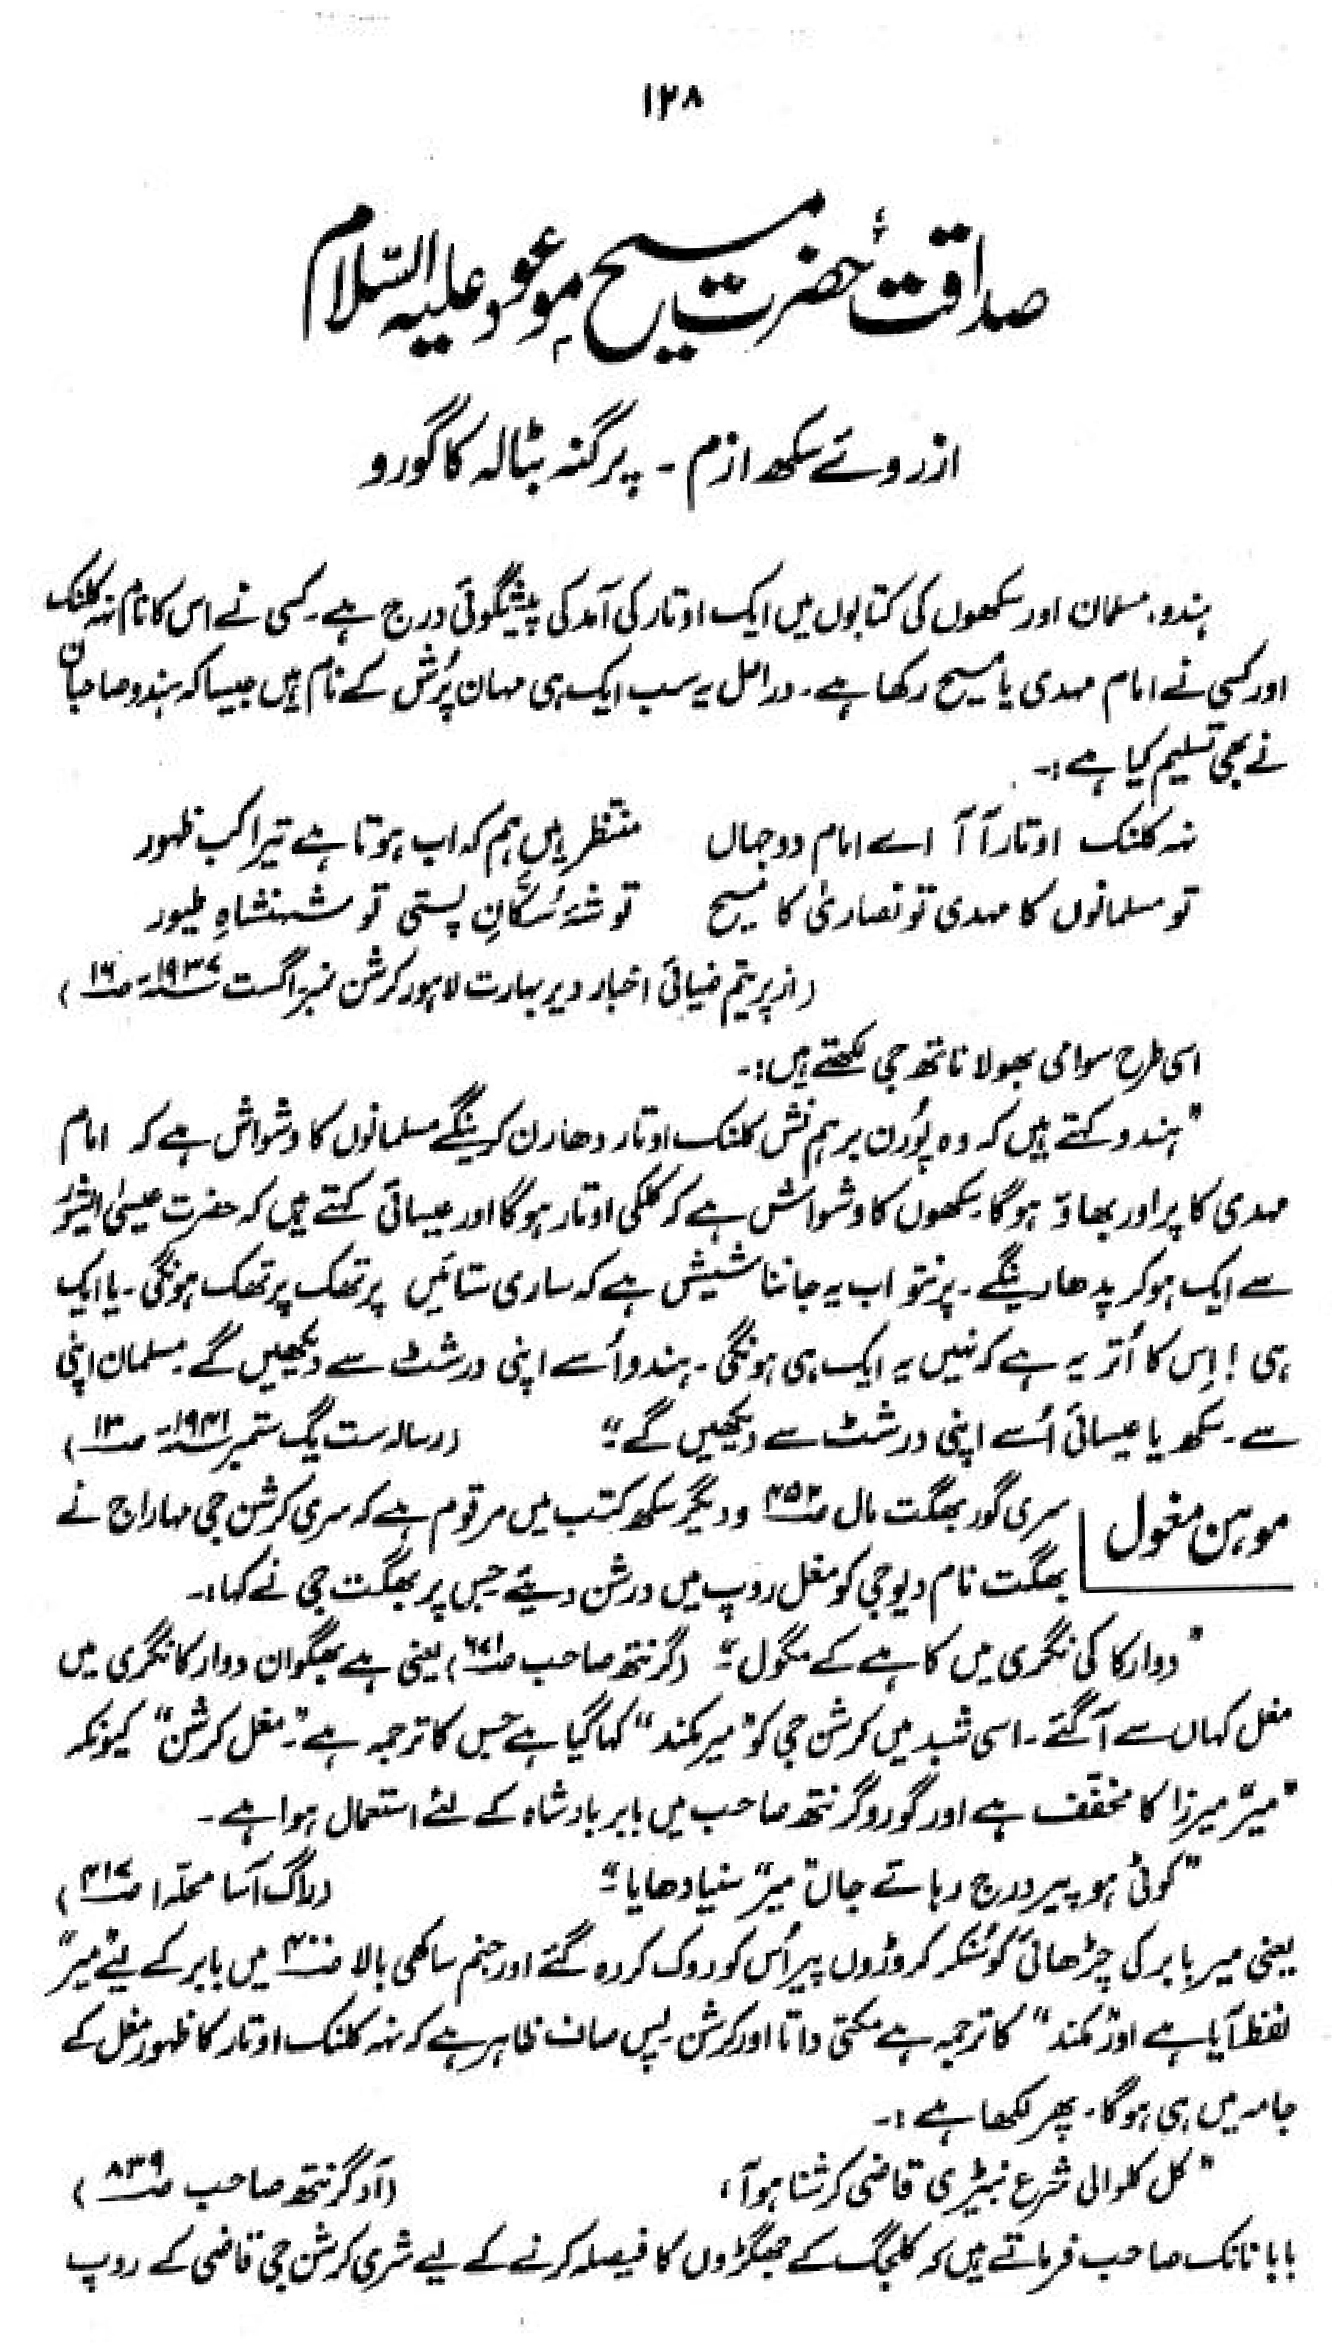 ۱۲۸
صداقت حضرت مسیح موعود علیہ السّلام
ازروئے سکھ ازم ۔ پرگنہ بٹالہ کا گورو
ہندو، مسلمان اور سکھوں کی کتابوں میں ایک اوتار کی آمد کی پیشگوئی درج ہے۔ کسی نے اس کا نام نہہ کلنک
اور کسی نے امام مہدی یا مسیح رکھا ہے۔ دراصل یہ سب ایک ہی مہان پُرش کے نام ہیں جیسا کہ ہندو صاحبان
نے بھی تسلیم کیا ہے:۔
نہہ کلنک اوتار آ آ اے امام دو جہاں منتظر ہیں ہم کہ اب ہوتا ہے تیرا کب ظہور
تو مسلمانوں کا مہدی تو نصاریٰ کا مسیح تو شہ سُکّانِ پستی تو شہنشاہِ طیور
(از پریتم ضیائی اخبار ویر بھارت لاہور کرشن نمبر اگست ۱۹۳۷ء ص۱۶)
اسی طرح سوامی بھولا ناتھ جی لکھتے ہیں:۔
"ہندو کہتے ہیں کہ وہ پُورن برہم نش کلنک اوتار دھارن کرینگے مسلمانوں کا وشواش ہے کہ امام
مہدی کا پراور بھاؤ ہوگا۔ سکھوں کا وشواش ہے کہ کلکی اوتار ہوگا اور عیسائی کہتے ہیں کہ حضرت عیسیٰ ایشور
سے ایک ہوکر پدھارینگے۔ پرنتو اب یہ جاننا شیش ہے کہ ساری ستائیں پرتھک پرتھک ہونگی۔ یا ایک
ہی! اِس کا اُتر یہ ہے کہ نہیں یہ ایک ہی ہونگی۔ ہندو اُسے اپنی درشٹ سے دیکھیں گے۔ مسلمان اپنی
سے۔ سکھ یا عیسائی اُسے اپنی درشٹ سے دیکھیں گے۔" (رسالہ ست یگ ستمبر ۱۹۴۱ء ص۱۳)
موہن مغول
سری گور بھگت مال ص۴۵۳ و دیگر سکھ کتب میں مرقوم ہے کہ سری کرشن جی مہاراج نے
بھگت نام دیو جی کو مغل روپ میں درشن دیئے جس پر بھگت جی نے کہا:۔
"دوارکا کی نگری میں کاہے کے مگول۔" (گرنتھ صاحب ص۶۷۱) یعنی ہے بھگوان دوارکا نگری میں
مغل کہاں سے آ گئے۔ اسی شبد میں کرشن جی کو "میر مکند" کہا گیا ہے جس کا ترجمہ ہے۔ "مغل کرشن" کیونکہ
"میر" میرزا کا مخفّف ہے اور گورو گرنتھ صاحب میں بابر بادشاہ کے لئے استعمال ہوا ہے۔
"کوٹی ہو پیر ورج رہا تے جاں "میر" سنیا دھایا۔" (راگ آسا محلہ ۱ ص۴۱۷)
یعنی میر بابر کی چڑھائی کو سُنکر کروڑوں پیر اُس کو روک کر رہ گئے اور جنم ساکھی بالا ص۴۰۰ میں بابر کے لیے "میر"
لفظ آیا ہے اور "مکند" کا ترجمہ ہے مکتی داتا اور کرشن۔ پس صاف ظاہر ہے کہ نہہ کلنک اوتار کا ظہور مغل کے
جامہ میں ہی ہوگا۔ پھر لکھا ہے:۔
"کل کلوالی شرع نبیڑی قاضی کرشنا ہوآ، (آد گرنتھ صاحب ص۸۳۹)
بابا نانک صاحب فرماتے ہیں کہ کلجگ کے جھگڑوں کا فیصلہ کرنے کے لیے شری کرشن جی قاضی کے روپ